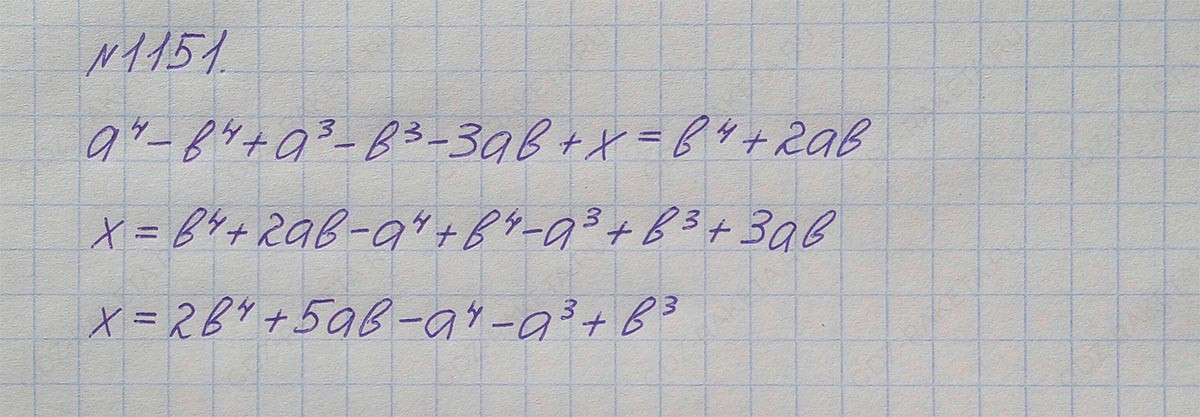 №1151.
a⁴-b⁴+a³-b³-3ab+x=b⁴+2ab
x=b⁴+2ab-a⁴+b⁴-a³+b³+3ab
x=2b⁴+5ab-a⁴-a³+b³